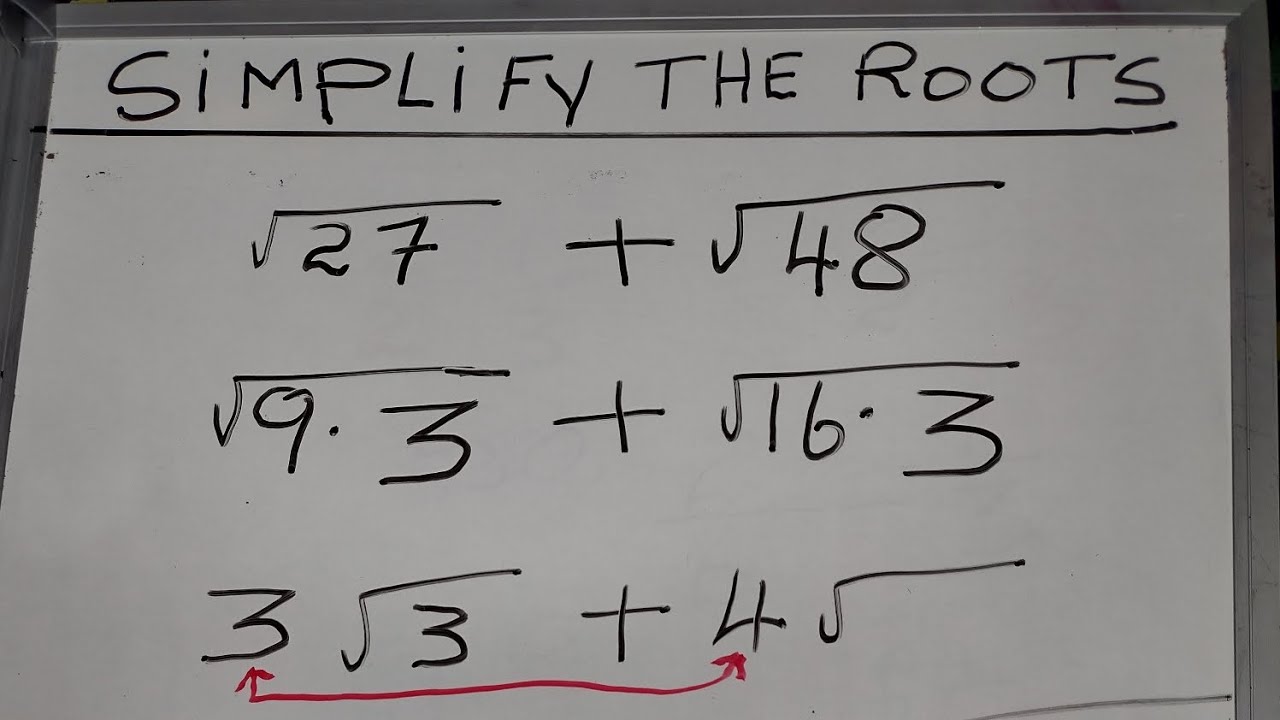 SiMPLiFY THE ROOTS
√27 + √48
√9·3 + √16·3
3√3 + 4√